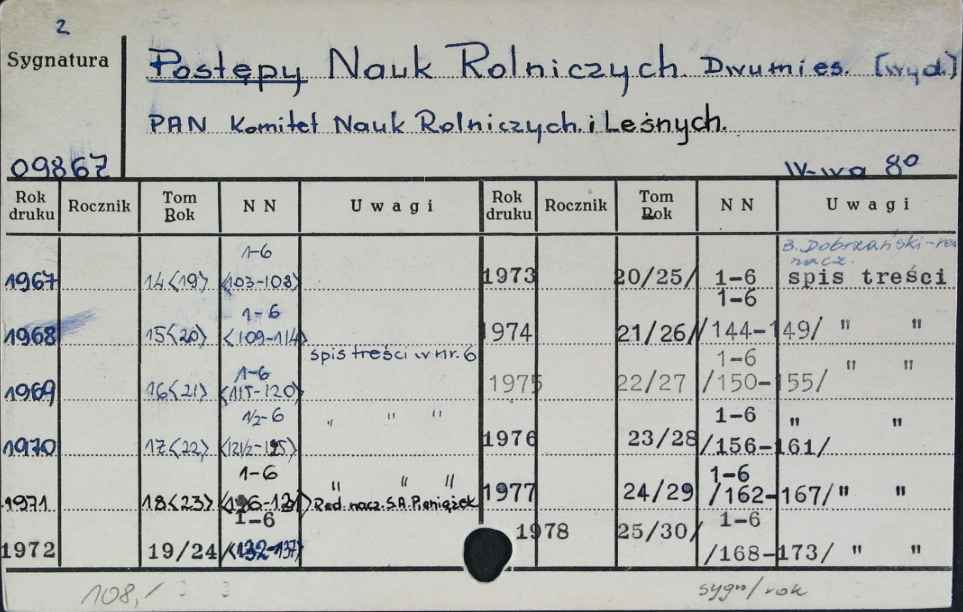 2
Sygnatura
Postępy Nauk Rolniczych. Dwumies. [wyd.]
PAN Komitet Nauk Rolniczych i Leśnych.
09867 W-wa 8º
Rok druku Rocznik Tom Rok NN Uwagi Rok druku Rocznik Tom Rok NN Uwagi
B. Dobrzański-
nacz.
1967 14<19> 1-6 <103-108> 1973 20/25/ 1-6 spis treści
1968 15<20> 1-6 <109-114> 1974 21/26/ 1-6 /144-149/ " "
spis treści w nr. 6
1969 16<21> 1-6 <115-120> 1975 22/27 1-6 /150-155/ " "
1970 17<22> 1/2-6 <121/2-125> " " " 1976 23/28 1-6 /156-161/ " "
1971 18<23> 1-6 <126-131> " " " Red. nacz. S.A. Pieniążek 1977 24/29 1-6 /162-167/ " "
1972 19/24/ 1-6 <132-137> 1978 25/30/ 1-6 /168-173/ " "
108,/ sygn/rok